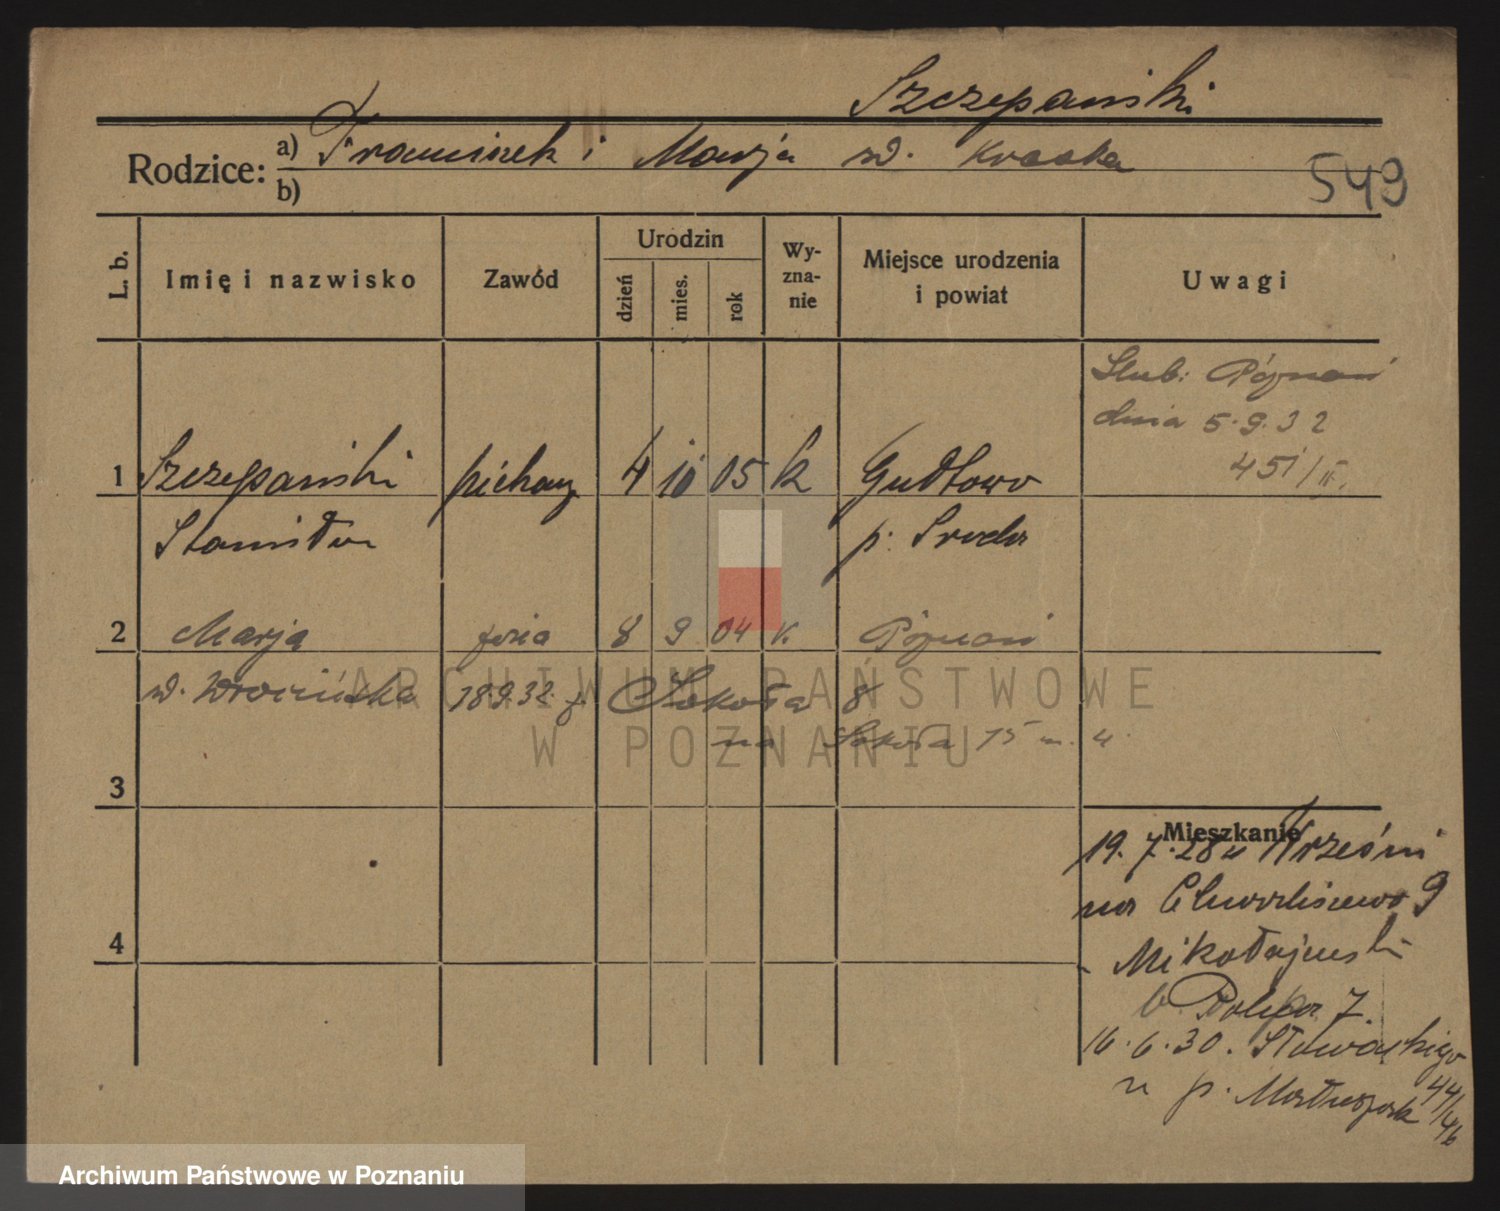 Szczepański
Rodzice:
a) Franciszek i Marja zd. Kraska
b)
549
L. b.
Imię i nazwisko
Zawód
Urodzin
dzień
mies.
rok
Wy-
zna-
nie
Miejsce urodzenia
i powiat
Uwagi
Ślub: Poznań
dnia 5.9.32
451/III.
1 Szczepański piekarz 4 10 05 k Gułtowo
Stanisław p. Środa
2 Marja żona 8 9 04 k. Poznań
18.9.32 Sokoła 8
na Sokoła 15 m. 4.
ARCHIWUM PAŃSTWOWE
W POZNANIU
3
Mieszkanie
19.7.28 Wrześni
na Chwaliszewo 9
Mikołajewski
4
16.6.30. Słowackiego
44/46
u p.
Archiwum Państwowe w Poznaniu